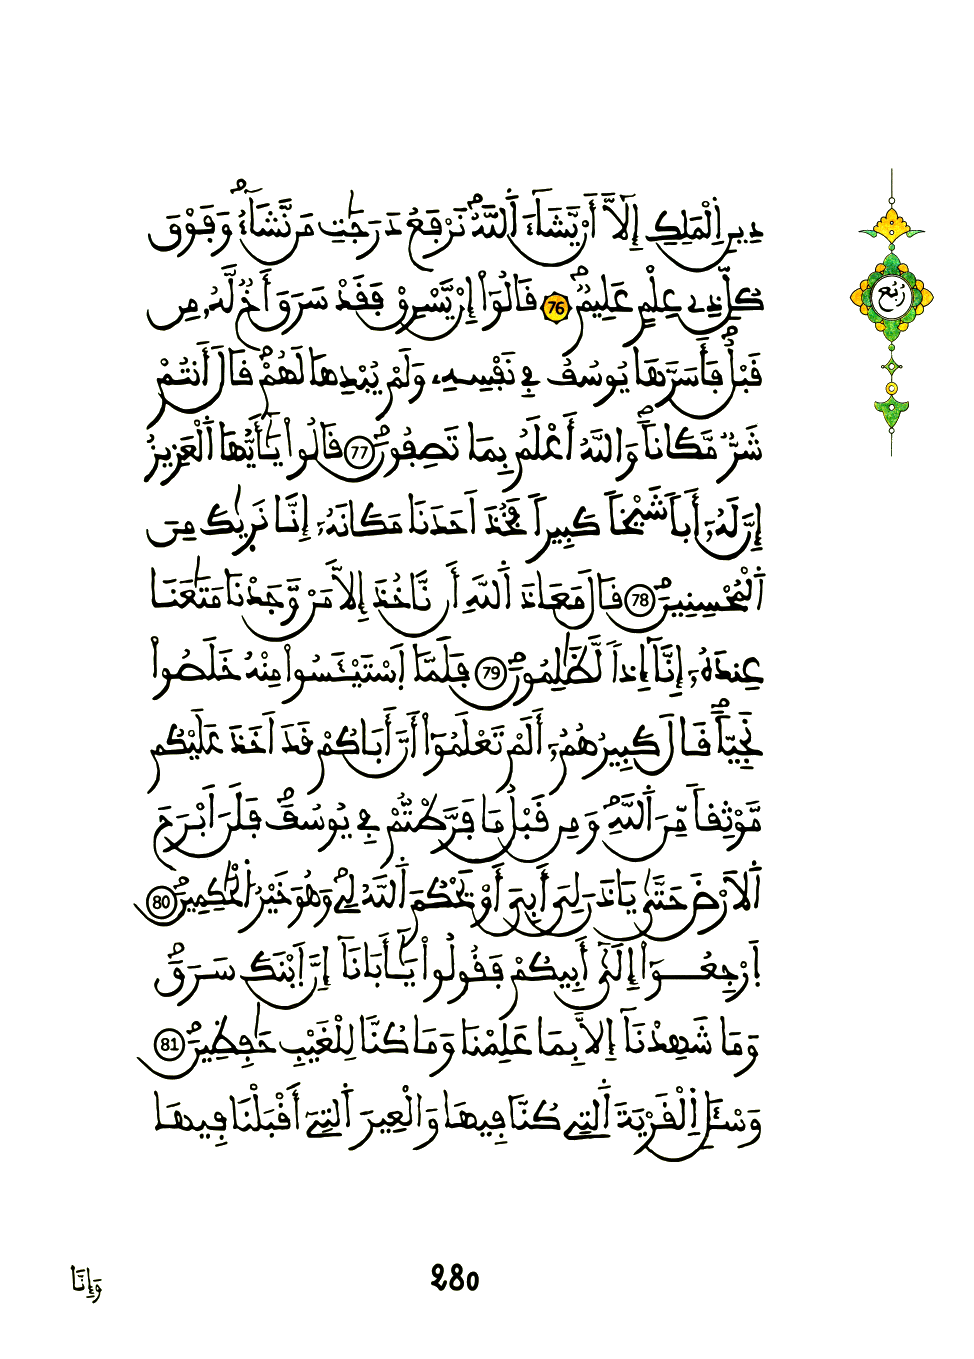 دِينِ اِ۬لْمَلِكِ إِلَّآ أَنْ يَّشَآءَ اَ۬للَّهُۖ نَرْفَعُ دَرَجَٰتِ مَن نَّشَآءُۖ وَفَوْقَ
رُبُع
كُلِّ ذِے عِلْمٍ عَلِيمٌۖ 76 قَالُوٓاْ إِنْ يَّسْرِقْ فَقَدْ سَرَقَ أَخٞ لَّهُۥ مِن
قَبْلُۖ فَأَسَرَّهَا يُوسُفُ فِے نَفْسِهِۦ وَلَمْ يُبْدِهَا لَهُمْۖ قَالَ أَنتُمْ
شَرّٞ مَّكَاناٗۖ وَاللَّهُ أَعْلَمُ بِمَا تَصِفُونَۖ 77 قَالُواْ يَٰٓأَيُّهَا اَ۬لْعَزِيزُ
إِنَّ لَهُۥٓ أَباٗ شَيْخاٗ كَبِيراٗ فَخُذَ اَحَدَنَا مَكَانَهُۥٓ إِنَّا نَر۪يٰكَ مِنَ
اَ۬لْمُحْسِنِينَۖ 78 قَالَ مَعَاذَ اَ۬للَّهِ أَن نَّاخُذَ إِلَّا مَنْ وَّجَدْنَا مَتَٰعَنَا
عِندَهُۥٓ إِنَّآ إِذاٗ لَّظَٰلِمُونَۖ 79 فَلَمَّا اَ۪سْتَيْـَٔسُواْ مِنْهُ خَلَصُواْ
نَجِيّاٗۖ قَالَ كَبِيرُهُمُۥٓ أَلَمْ تَعْلَمُوٓاْ أَنَّ أَبَاكُمْ قَدَ اَخَذَ عَلَيْكُم
مَّوْثِقاٗ مِّنَ اَ۬للَّهِۖ وَمِن قَبْلُ مَا فَرَّطتُّمْ فِے يُوسُفَۖ فَلَنَ اَبْرَحَ
اَ۬لَارْضَ حَتَّىٰ يَاذَنَ لِيَ أَبِيَ أَوْ يَحْكُمَ اَ۬للَّهُ لِےۖ وَهُوَ خَيْرُ اُ۬لْحَٰكِمِينَۖ 80
اَ۪رْجِعُوٓاْ إِلَىٰٓ أَبِيكُمْ فَقُولُواْ يَٰٓأَبَانَآ إِنَّ اَ۪بْنَكَ سَرَقَۖ
وَمَا شَهِدْنَآ إِلَّا بِمَا عَلِمْنَا وَمَا كُنَّا لِلْغَيْبِ حَٰفِظِينَۖ 81
وَسْـَٔلِ اِ۬لْقَرْيَةَ اَ۬لتِے كُنَّا فِيهَا وَالْعِيرَ اَ۬لتِےٓ أَقْبَلْنَا فِيهَا
وَإِنَّا
280